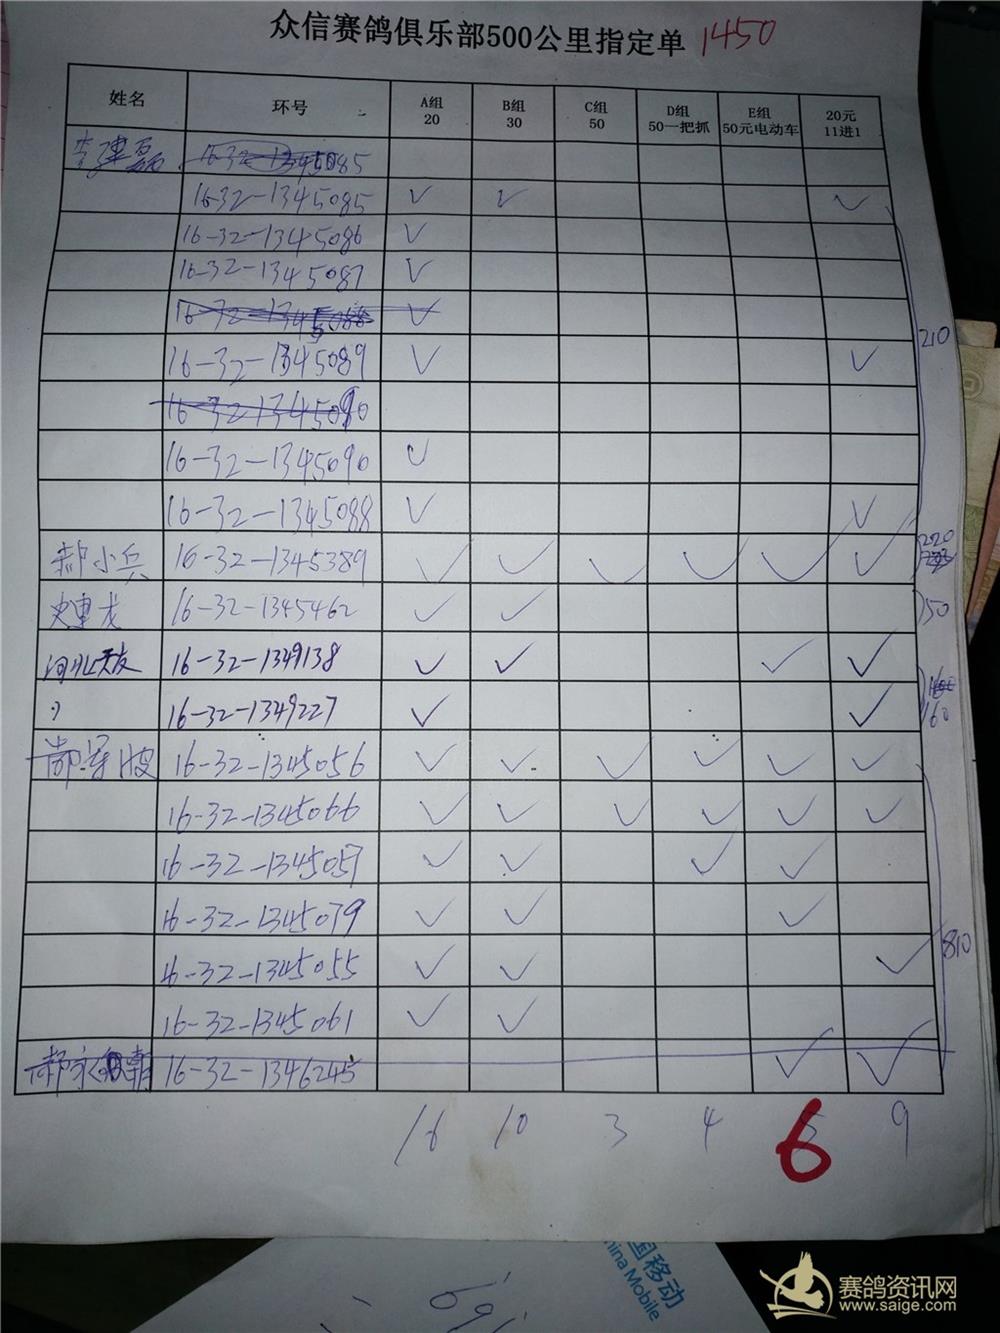 众信赛鸽俱乐部500公里指定单 1450
姓名 环号 A组 20 B组 30 C组 50 D组 50一把抓 E组 50元电动车 20元 11进1
李建磊 16-32-1345085
16-32-1345085 ✓ ✓ ✓
16-32-1345086 ✓
16-32-1345087 ✓
16-32-1345088 ✓
210
16-32-1345089 ✓ ✓
16-32-1345090
16-32-1345090 ✓
16-32-1345088 ✓ ✓
郝小兵 16-32-1345389 ✓ ✓ ✓ ✓ ✓ ✓ 220
史建龙 16-32-1345462 ✓ ✓ 50
河北天友 16-32-1349138 ✓ ✓ ✓ ✓
16-32-1349227 ✓ ✓ 160
16-32-1345056 ✓ ✓ ✓ ✓ ✓ ✓
16-32-1345066 ✓ ✓ ✓ ✓ ✓ ✓
16-32-1345057 ✓ ✓ ✓ ✓
16-32-1345079 ✓ ✓ ✓
16-32-1345055 ✓ ✓ ✓ 810
16-32-1345061 ✓ ✓
16-32-1346245 ✓ ✓
16 10 3 4 6 9
国移动
China Mobile
赛鸽资讯网
www.saige.com